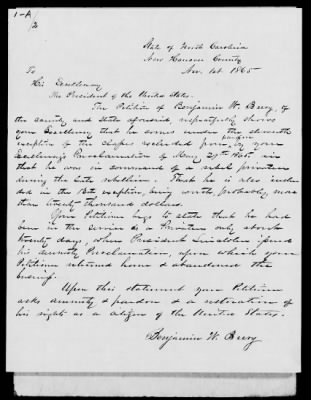 1-A
12
State of North Carolina
New Hanover County
Nov. 1st 1865
To
His Excellency
The President of the United States.
The Petition of Benjamin W. Beery, of
the county and State aforesaid, respectfully shows
your Excellency that he comes under the eleventh
exception of the classes excluded from pardon by your
Excellency's Proclamation of May 29th 1865, in
that he was in command of a rebel privateer
during the late rebellion. That he is also inclu-
ded in the 13th exception, being worth probably more
than twenty thousand dollars.
Your Petitioner begs to state that he had
been in the service as a Privateer only about
twenty days, when President Lincoln issued
his Proclamation, upon which your
Petitioner returned home & abandoned the
business.
Upon this statement your Petitioner
asks amnesty & pardon & a restoration of
his rights as a citizen of the United States.
Benjamin W. Beery